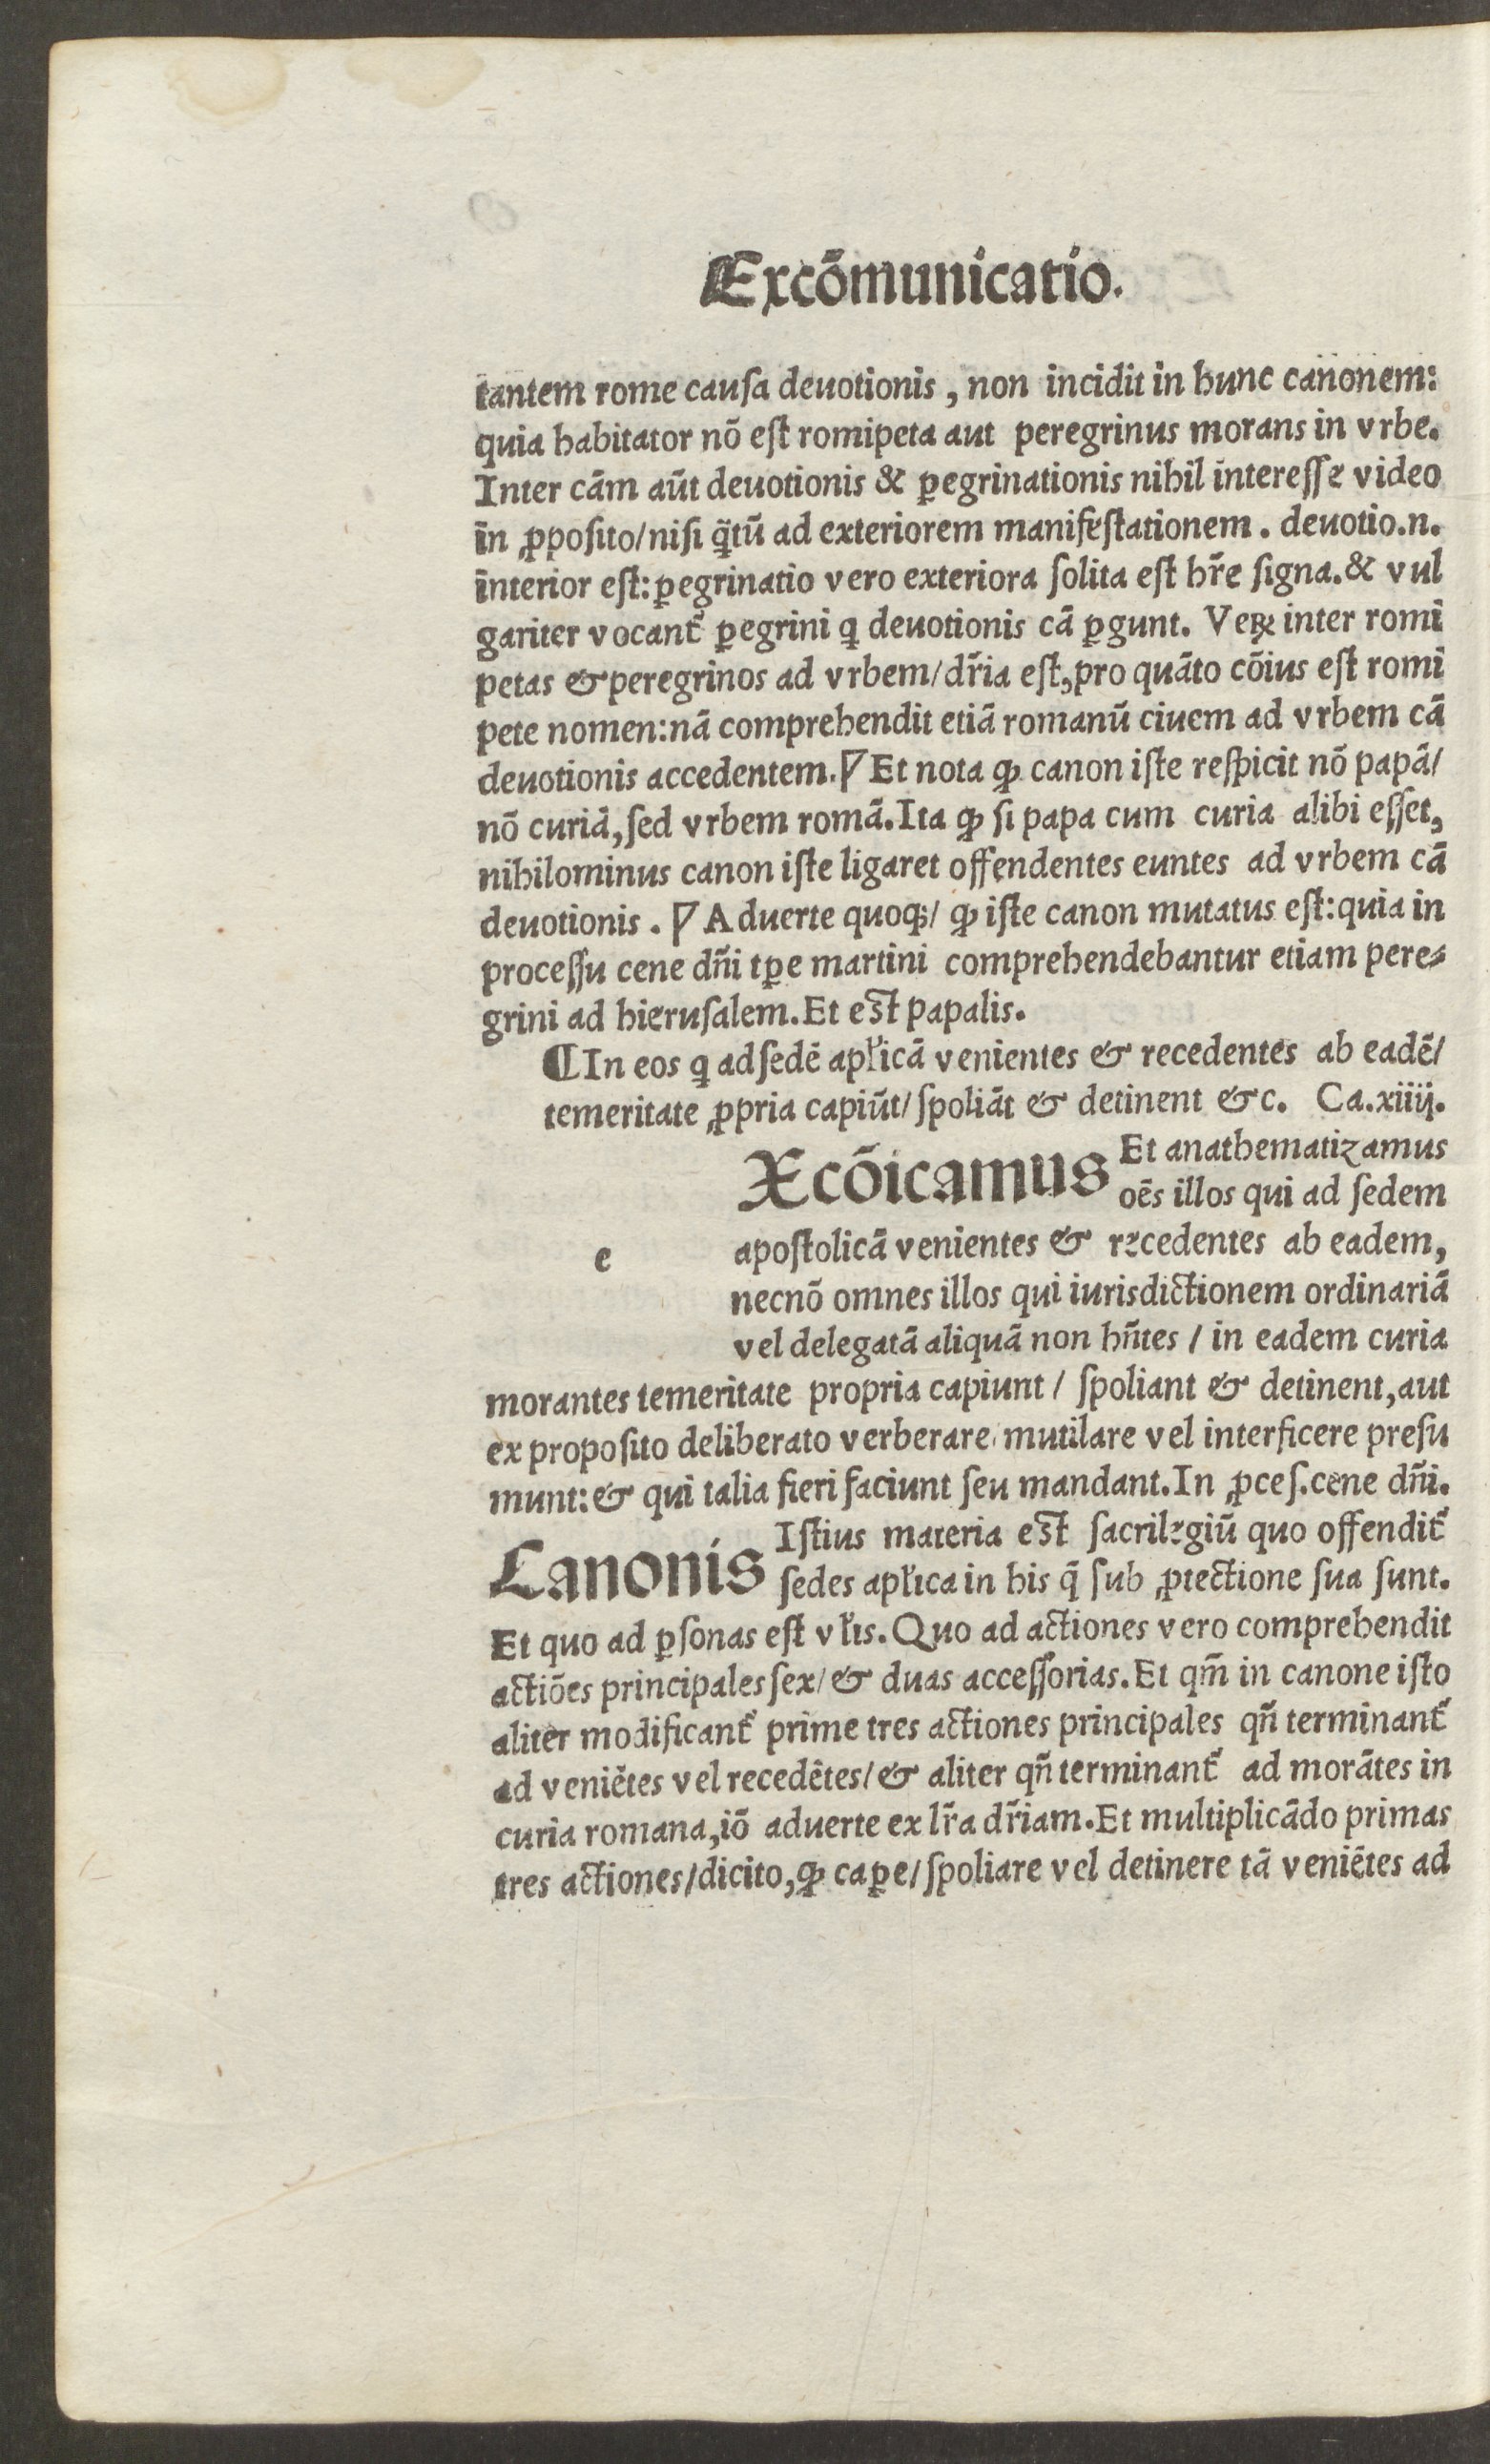 Excōmunicatio.
tantem rome causa deuotionis, non incidit in hunc canonem:
quia habitator nō est romipeta aut peregrinus morans in vrbe.
Inter cām aūt deuotionis & ꝑegrinationis nihil interesse video
in ꝓposito/nisi q̄tū ad exteriorem manifestationem. deuotio.n.
interior est: ꝑegrinatio vero exteriora solita est hr̄e signa. & vul
gariter vocant᷑ ꝑegrini q deuotionis cā ꝑgunt. Veꝝ inter romi
petas & peregrinos ad vrbem/dr̄ia est, pro quāto cōius est romi
pete nomen: nā comprehendit etiā romanū ciuem ad vrbem cā
deuotionis accedentem. Et nota ꝙ canon iste respicit nō papā/
nō curiā, sed vrbem romā. Ita ꝙ si papa cum curia alibi esset,
nihilominus canon iste ligaret offendentes euntes ad vrbem cā
deuotionis. Aduerte quoqꝫ/ ꝙ iste canon mutatus est: quia in
processu cene dn̄i tꝑe martini comprehendebantur etiam pere-
grini ad hierusalem. Et est papalis.
¶ In eos q ad sedē apl'icā venientes & recedentes ab eadē/
temeritate ꝓpria capiūt/spoliāt & detinent &c. Ca.xiiij.
e
Xcōicamus Et anathematizamus
oēs illos qui ad sedem
apostolicā venientes & recedentes ab eadem,
necnō omnes illos qui iurisdictionem ordinariā
vel delegatā aliquā non hn̄tes / in eadem curia
morantes temeritate propria capiunt / spoliant & detinent, aut
ex proposito deliberato verberare/ mutilare vel interficere presu
munt: & qui talia fieri faciunt seu mandant. In ꝓces. cene dn̄i.
Canonis Istius materia est sacrilegiū quo offendit᷑
sedes apl'ica in his q̄ sub ꝓtectione sua sunt.
Et quo ad ꝑsonas est vl'is. Quo ad actiones vero comprehendit
actiōes principales sex/ & duas accessorias. Et qm̄ in canone isto
aliter modificant᷑ prime tres actiones principales qn̄ terminant᷑
ad veniētes vel recedētes/ & aliter qn̄ terminant᷑ ad morātes in
curia romana, iō aduerte ex lr̄a dr̄iam. Et multiplicādo primas
tres actiones/dicito, ꝙ caꝑe/spoliare vel detinere tā veniētes ad